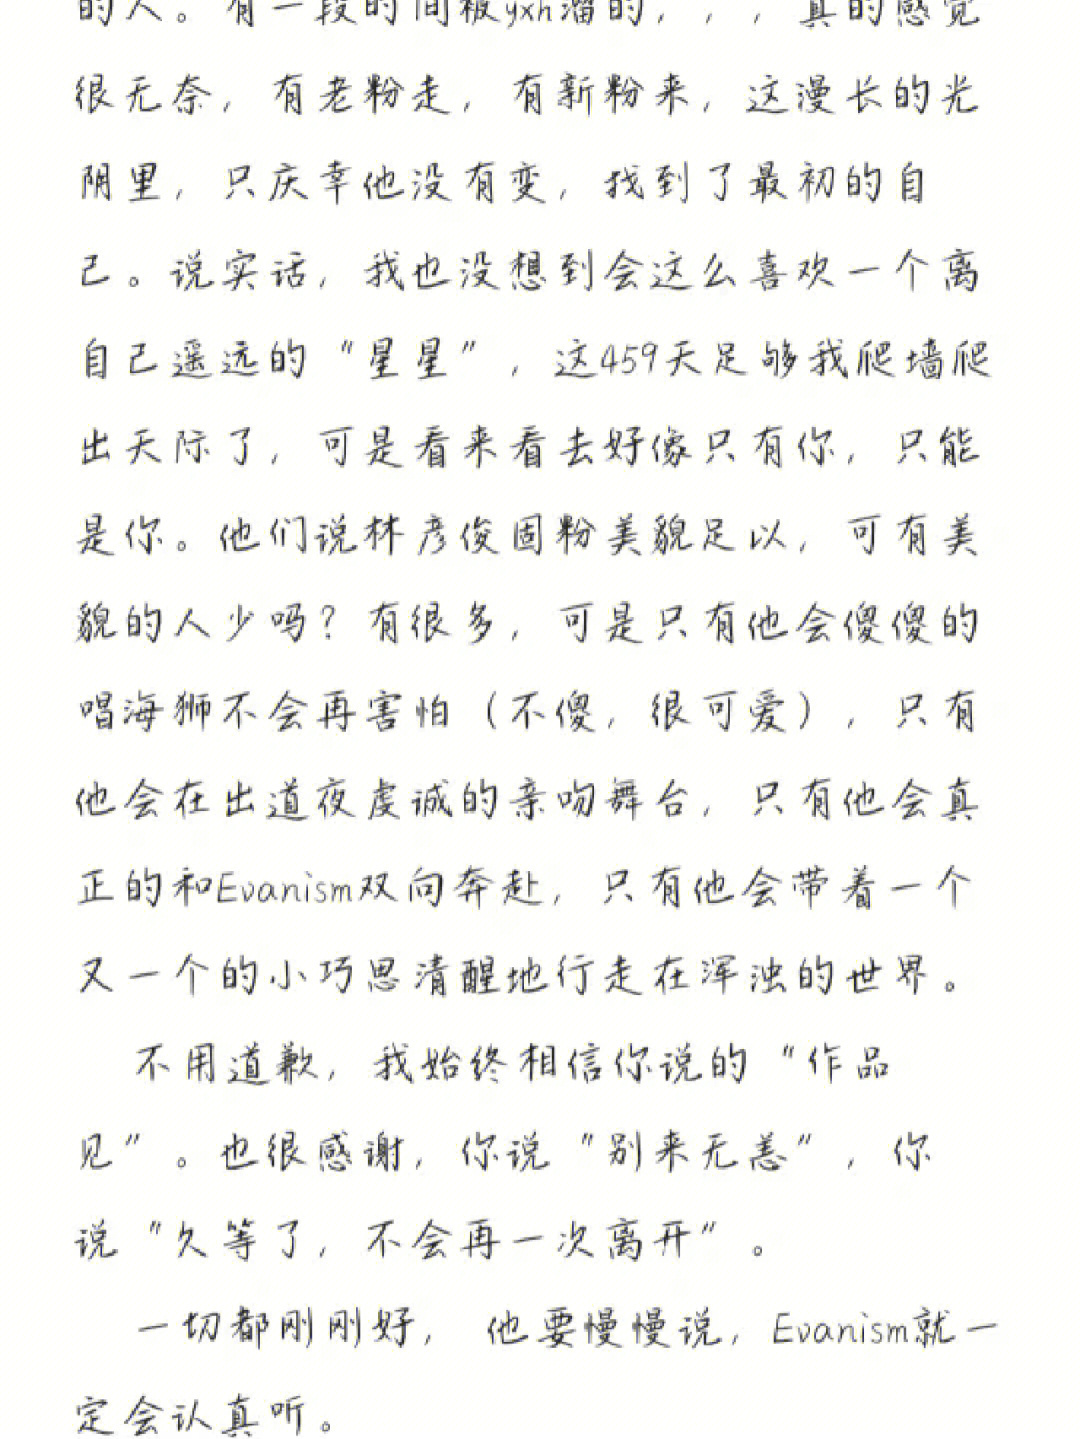 的人。有一段时间被yxh溜的，，，真的感觉
很无奈，有老粉走，有新粉来，这漫长的光
阴里，只庆幸他没有变，找到了最初的自
己。说实话，我也没想到会这么喜欢一个离
自己遥远的“星星”，这459天足够我爬墙爬
出天际了，可是看来看去好像只有你，只能
是你。他们说林彦俊固粉美貌足以，可有美
貌的人少吗？有很多，可是只有他会傻傻的
唱海狮不会再害怕（不傻，很可爱），只有
他会在出道夜虔诚的亲吻舞台，只有他会真
正的和Evanism双向奔赴，只有他会带着一个
又一个的小巧思清醒地行走在浑浊的世界。
不用道歉，我始终相信你说的“作品
见”。也很感谢，你说“别来无恙”，你
说“久等了，不会再一次离开”。
一切都刚刚好，他要慢慢说，Evanism就一
定会认真听。